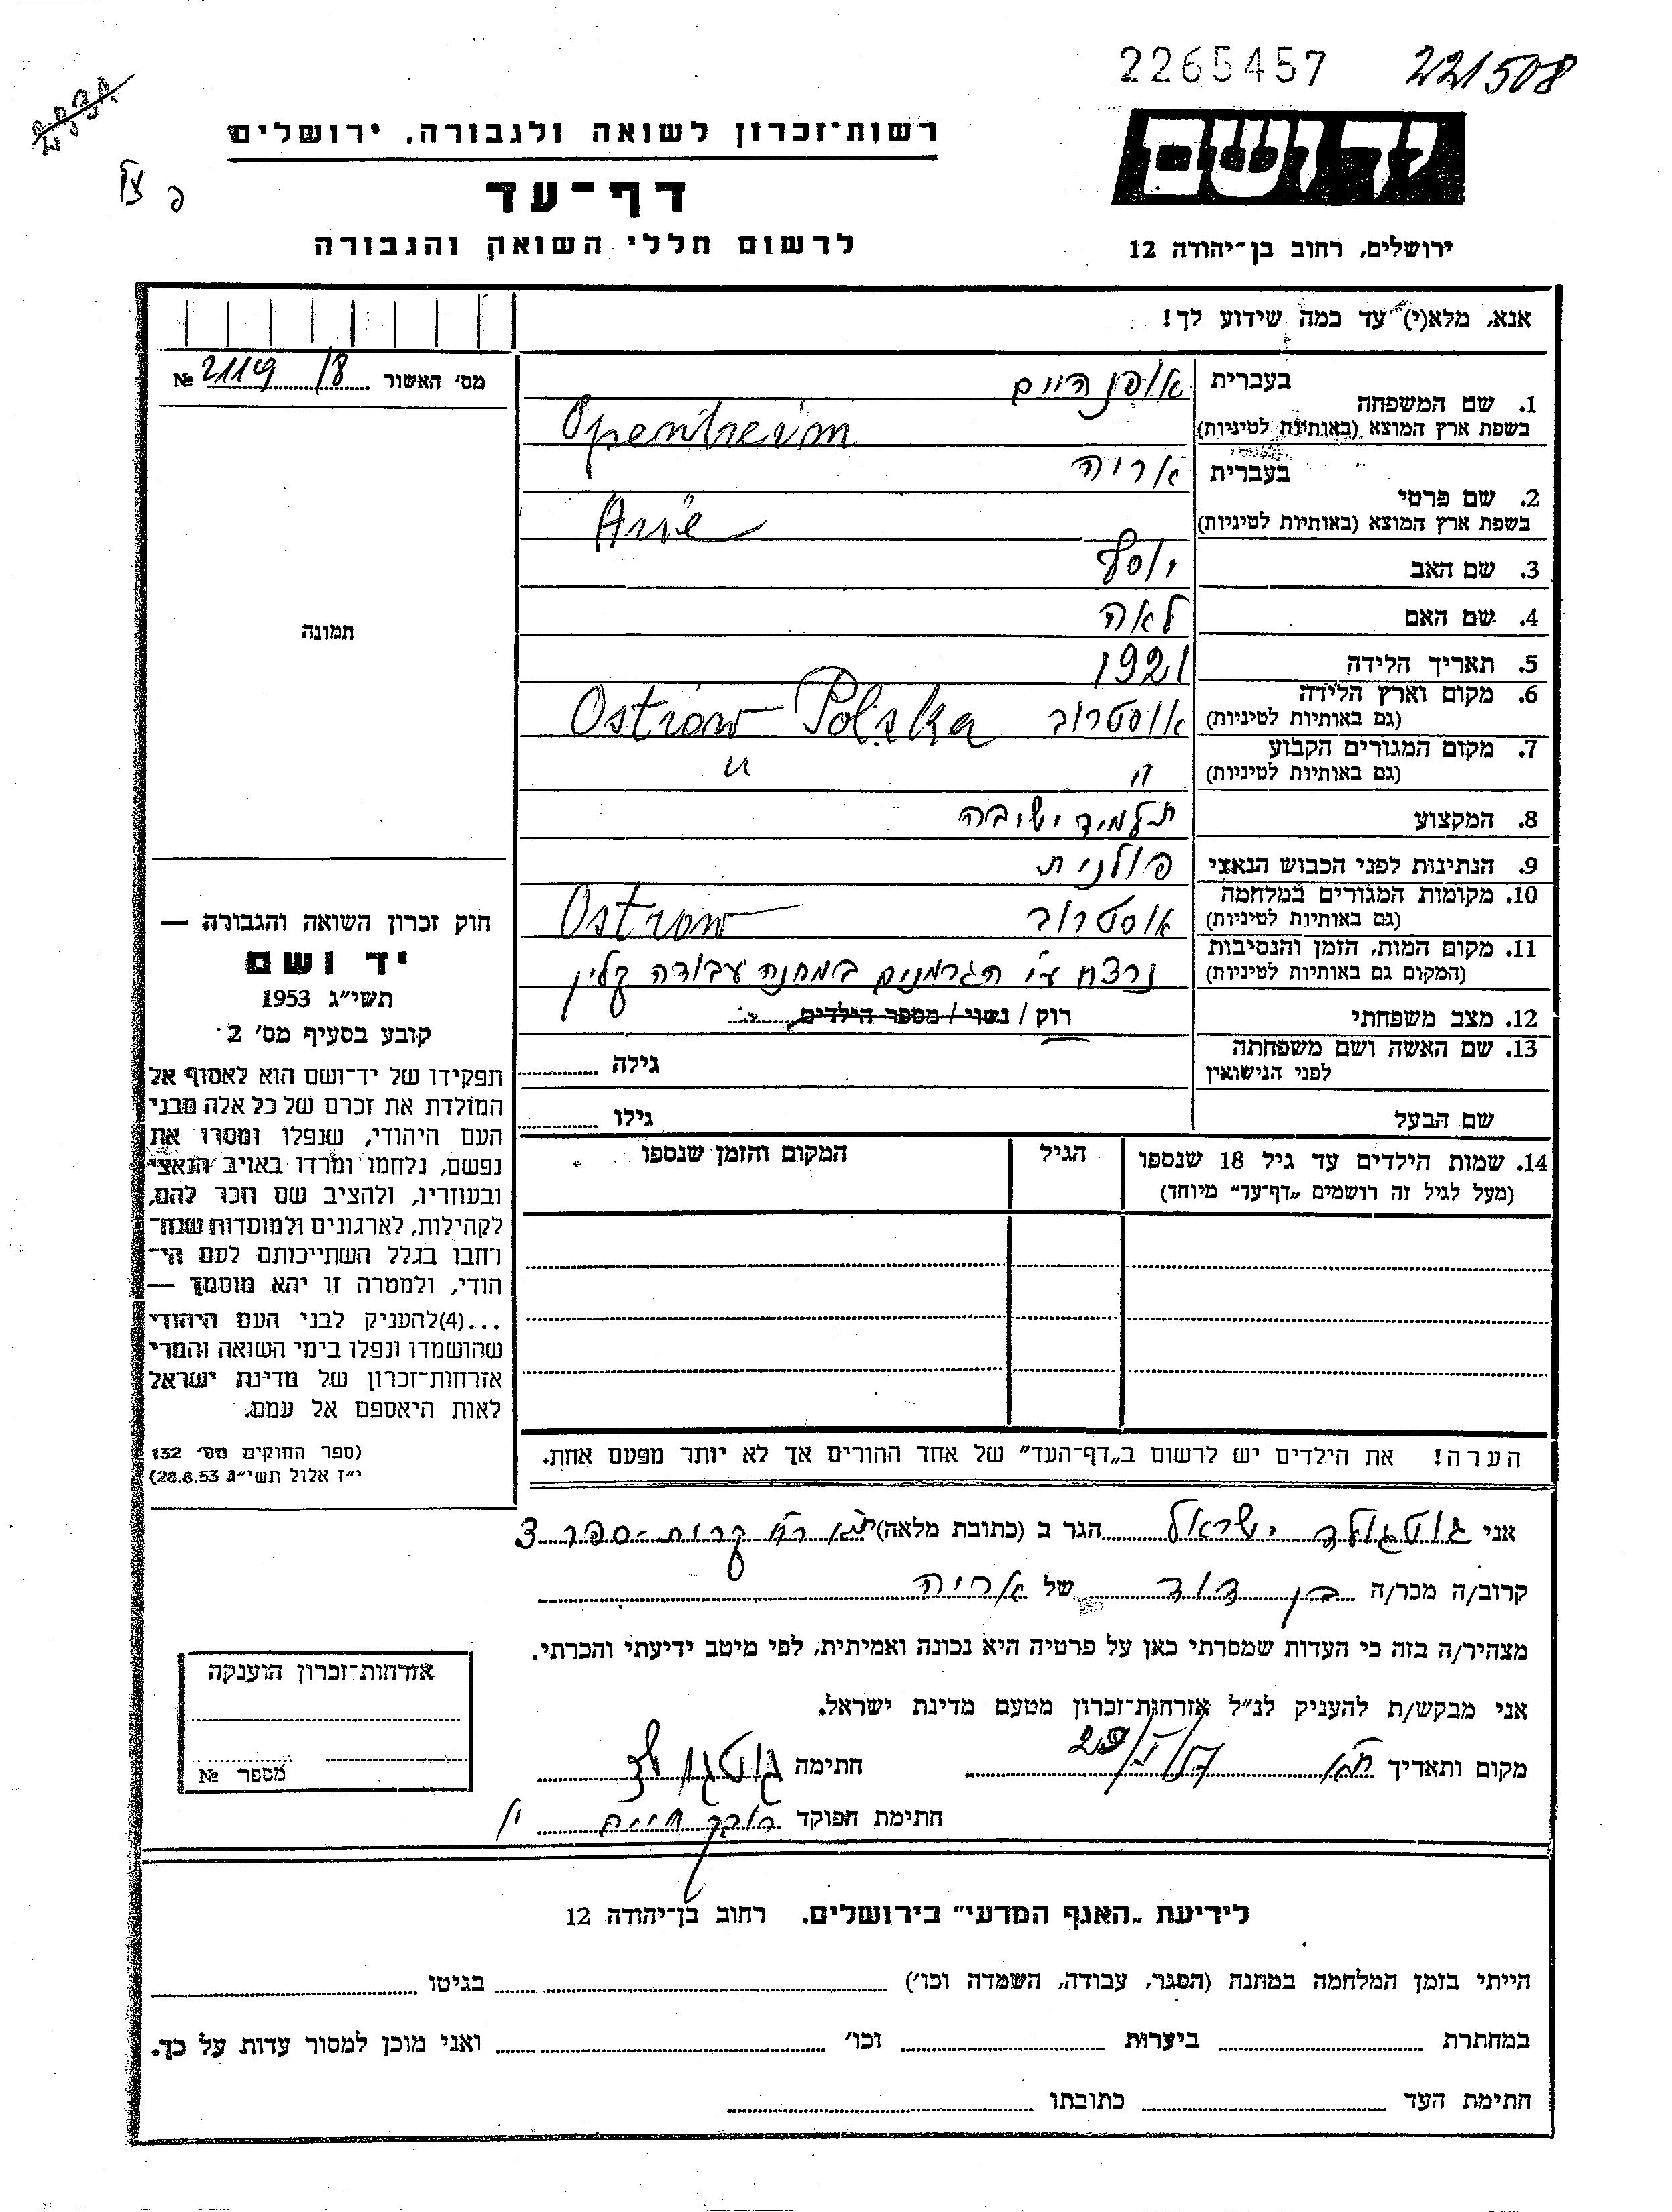 2265457 221508
יד ושם
ירושלים, רחוב בן־יהודה 12
רשות־זכרון לשואה ולגבורה, ירושלים
דף־עד
לרשום חללי השואה והגבורה
אנא, מלא(י) עד כמה שידוע לך!
מס׳ האשור 2119 /8 №
תמונה
1. שם המשפחה
בעברית אופן היים
בשפת ארץ המוצא (באותיות לטיניות) Openheim
2. שם פרטי
בעברית אריה
בשפת ארץ המוצא (באותיות לטיניות) Arie
3. שם האב יוסף
4. שם האם לאה
5. תאריך הלידה 1921
6. מקום וארץ הלידה אוסטרוב Ostrow Polska
(גם באותיות לטיניות)
7. מקום המגורים הקבוע " "
(גם באותיות לטיניות)
8. המקצוע תלמיד ישיבה
9. הנתינות לפני הכבוש הנאצי פולנית
10. מקומות המגורים במלחמה אוסטרוב Ostrow
(גם באותיות לטיניות)
11. מקום המות, הזמן והנסיבות נרצח ע״י הגרמנים במחנה עבודה קלין
(המקום גם באותיות לטיניות)
12. מצב משפחתי רוק / נשוי / מספר הילדים
13. שם האשה ושם משפחתה גילה
לפני הנישואין
שם הבעל גילו
14. שמות הילדים עד גיל 18 שנספו הגיל המקום והזמן שנספו
(מעל לגיל זה רושמים „דף־עד״ מיוחד)
הערה! את הילדים יש לרשום ב„דף־העד״ של אחד ההורים אך לא יותר מפעם אחת.
חוק זכרון השואה והגבורה —
יד ושם
תשי״ג 1953
קובע בסעיף מס׳ 2
תפקידו של יד־ושם הוא לאסוף אל
המולדת את זכרם של כל אלה מבני
העם היהודי, שנפלו ומסרו את
נפשם, נלחמו ומרדו באויב הנאצי
ובעוזריו, ולהציב שם וזכר להם,
לקהילות, לארגונים ולמוסדות שנח־
רחבו בגלל השתייכותם לעם הי־
הודי, ולמטרה זו יהא מוסמך —
...(4)להעניק לבני העם היהודי
שהושמדו ונפלו בימי השואה והמרי
אזרחות־זכרון של מדינת ישראל
לאות היאספם אל עמם.
(ספר החוקים מס׳ 132
י״ז אלול תשי״ג 28.8.53)
אני גוטגולד ישראל הגר ב (כתובת מלאה) ת״א רח׳ קרית-ספר 3
קרוב/ה מכר/ה בן דוד של אריה
מצהיר/ה בזה כי העדות שמסרתי כאן על פרטיה היא נכונה ואמיתית, לפי מיטב ידיעתי והכרתי.
אני מבקש/ת להעניק לנ״ל אזרחות־זכרון מטעם מדינת ישראל.
מקום ותאריך ת״א חתימה גוטגולד
חתימת הפוקד
אזרחות־זכרון הוענקה
מספר №
לידיעת „האגף המדעי״ בירושלים. רחוב בן־יהודה 12
הייתי בזמן המלחמה במחנה (הסגר, עבודה, השמדה וכו׳) בגיטו
במחתרת ביערות וכו׳ ואני מוכן למסור עדות על כך.
חתימת העד כתובתו